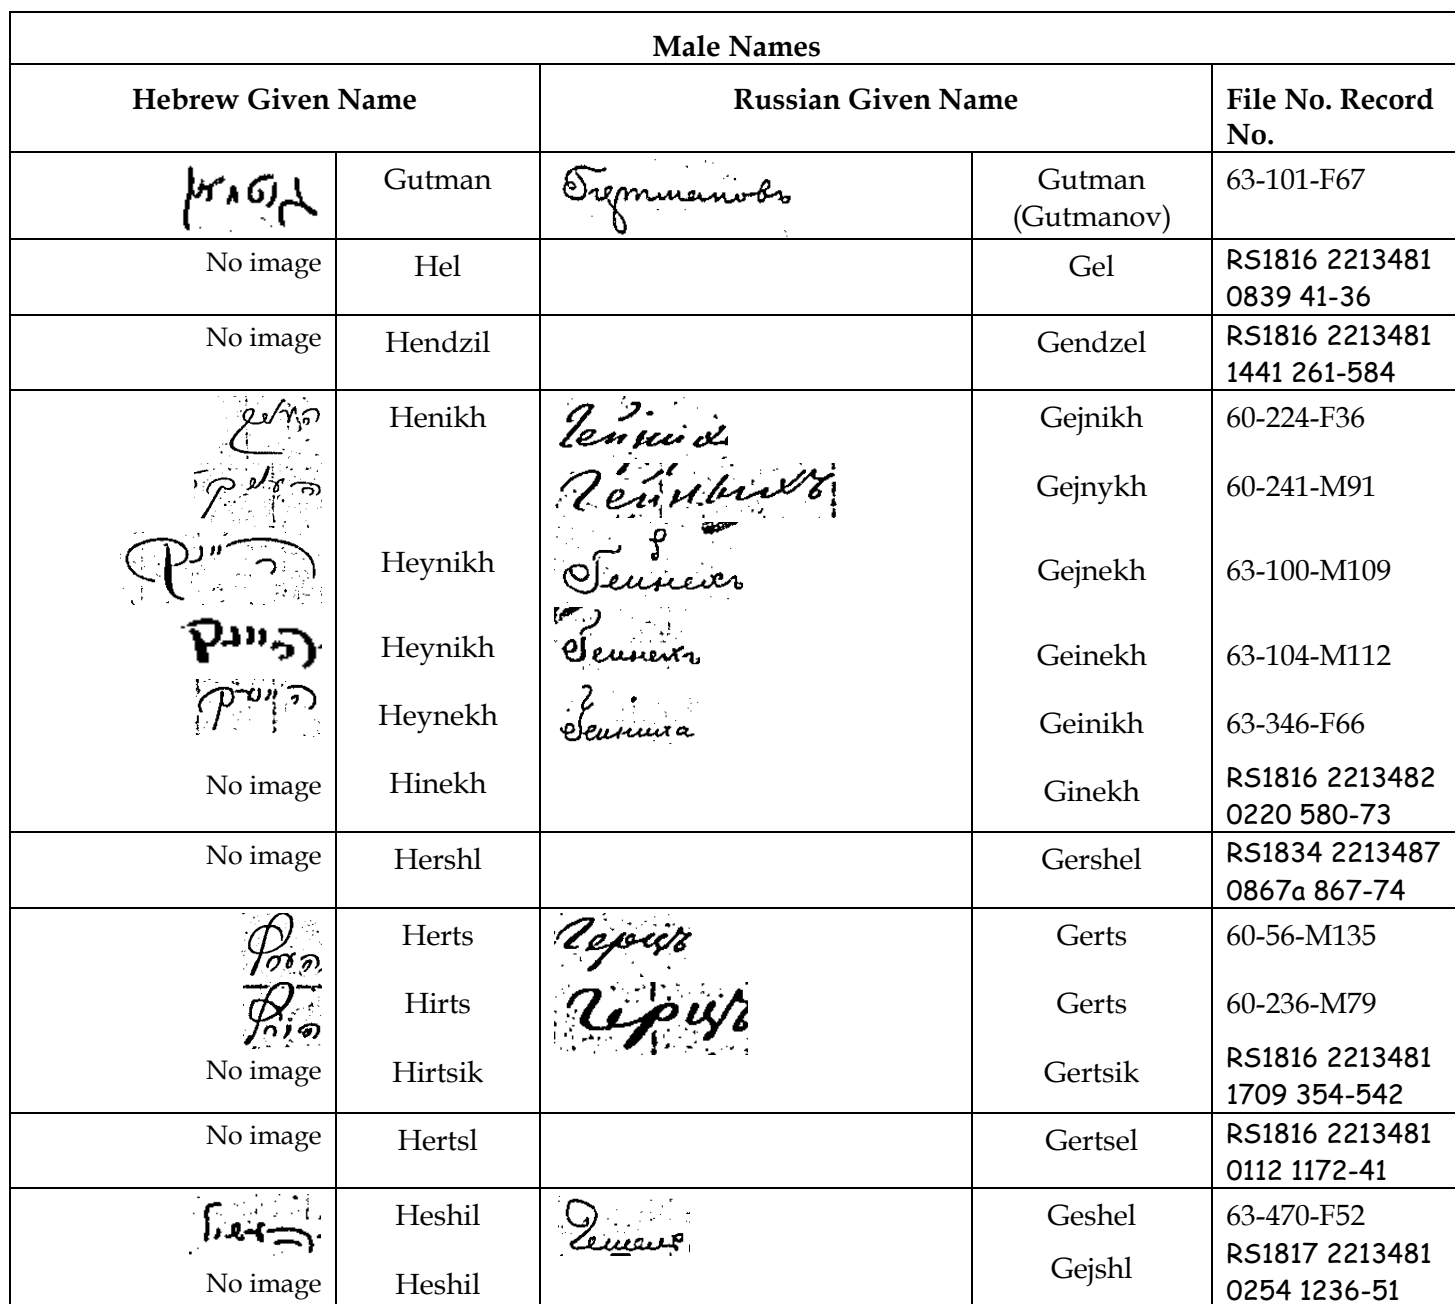 Male Names
Hebrew Given Name Russian Given Name File No. Record No.
גוטמאן Gutman Гутмановъ Gutman (Gutmanov) 63-101-F67
No image Hel Gel RS1816 2213481 0839 41-36
No image Hendzil Gendzel RS1816 2213481 1441 261-584
Henikh Гейних Gejnikh 60-224-F36
Гейныхъ Gejnykh 60-241-M91
היינק Heynikh Гейнехъ Gejnekh 63-100-M109
היינק Heynikh Геинехъ Geinekh 63-104-M112
Heynekh Геиниха Geinikh 63-346-F66
No image Hinekh Ginekh RS1816 2213482 0220 580-73
No image Hershl Gershel RS1834 2213487 0867a 867-74
הערץ Herts Герцъ Gerts 60-56-M135
הירץ Hirts Герцъ Gerts 60-236-M79
No image Hirtsik Gertsik RS1816 2213481 1709 354-542
No image Hertsl Gertsel RS1816 2213481 0112 1172-41
Heshil Geshel 63-470-F52
No image Heshil Gejshl RS1817 2213481 0254 1236-51